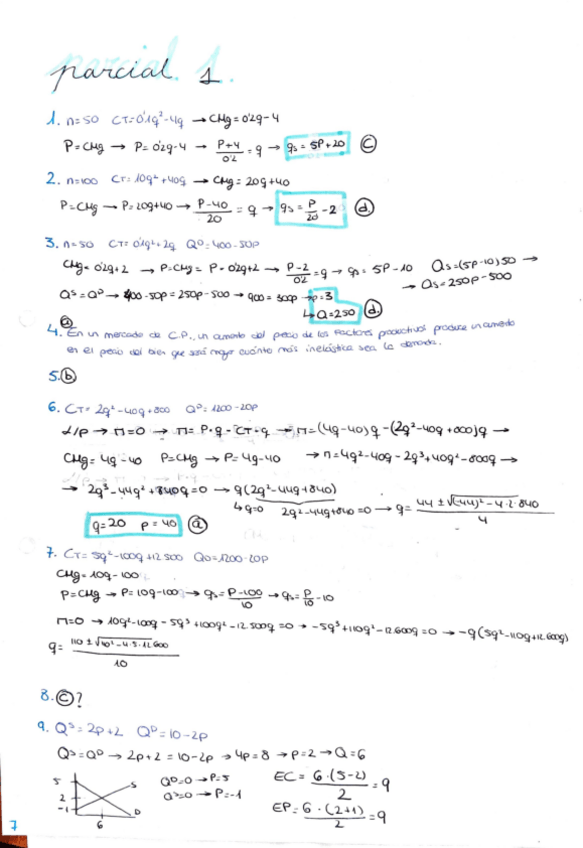 parcial 1.
1. n=50 CT=0'1q²-4q → CMg=0'2q-4
P=CMg → P=0'2q-4 → (P+4)/0'2=q → qs=5P+20 (c)
2. n=100 CT=10q²+40q → CMg=20q+40
P=CMg → P=20q+40 → (P-40)/20=q → qs=P/20-2 (d)
3. n=50 CT=0'1q²+2q Qᴰ=400-50P
CMg=0'2q+2 → P=CMg = P=0'2q+2 → (P-2)/0'2=q → qs=5P-10 Qs=(5P-10)50 →
→ Qs=250P-500
Qˢ=Qᴰ → 400-50P=250P-500 → 900=300P → p=3
↳ Q=250 (d.)
(a)
4. En un mercado de C.P., un aumento del precio de los factores productivos produce un aumento
en el precio del bien que será mayor cuánto más inelástica sea la demanda.
5. (b)
6. CT=2q²-40q+800 Qᴰ=1200-20P
L/P → π=0 → π=P·q-CT·q → π=(4q-40)q-(2q²-40q+800)q →
CMg=4q-40 P=CMg → P=4q-40 → π=4q²-40q-2q³+40q²-800q →
→ 2q³-44q²+840q=0 → q(2q²-44q+840)
↳ q=0 2q²-44q+840=0 → q=(44±√((44)²-4·2·840))/4
q=20 p=40 (a)
7. CT=5q²-100q+12500 QD=1200-20P
CMg=10q-100
P=CMg → P=10q-100 → qs=(P-100)/10 → qs=P/10-10
π=0 → 10q²-100q-5q³+100q²-12.500q=0 → -5q³+110q²-12.600q=0 → -q(5q²-110q+12.600)
q=(110±√(110²-4·5·12.600))/10
8. (c)?
9. Qˢ=2p+2 Qᴰ=10-2p
Qˢ=Qᴰ → 2p+2=10-2p → 4p=8 → p=2 → Q=6
5 S
2
-1 D
6
Qᴰ=0 → P=5
Qˢ=0 → P=-1
EC=6·(5-2)/2=9
EP=6·(2+1)/2=9
7